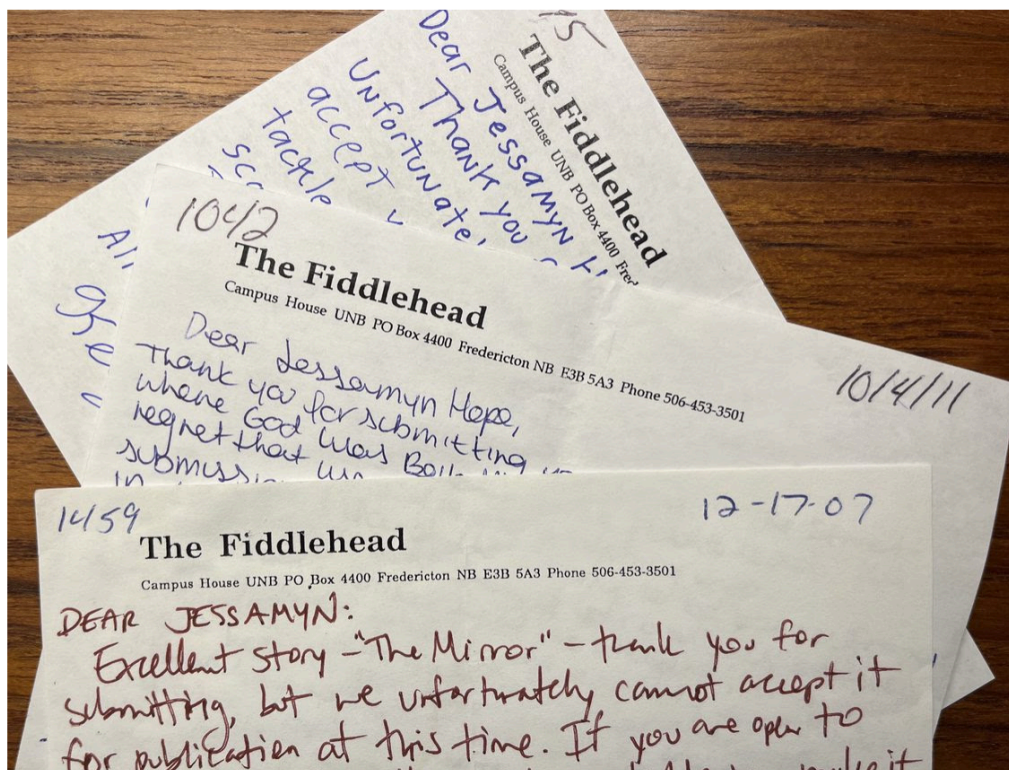 15
The Fiddlehead
Campus House UNB PO Box 4400 Fred
Dear Jessamyn H
Thank you
Unfortunate
accept
tackle
scr
1042
The Fiddlehead
Campus House UNB PO Box 4400 Fredericton NB E3B 5A3 Phone 506-453-3501
10/4/11
Dear Jessamyn Hope,
Thank you for submitting
where God Was Born
regret that
submissi
in
1459
12-17-07
The Fiddlehead
Campus House UNB PO Box 4400 Fredericton NB E3B 5A3 Phone 506-453-3501
DEAR JESSAMYN:
Excellent story - "The Mirror" - thank you for
submitting, but we unfortunately cannot accept it
for publication at this time. If you are open to